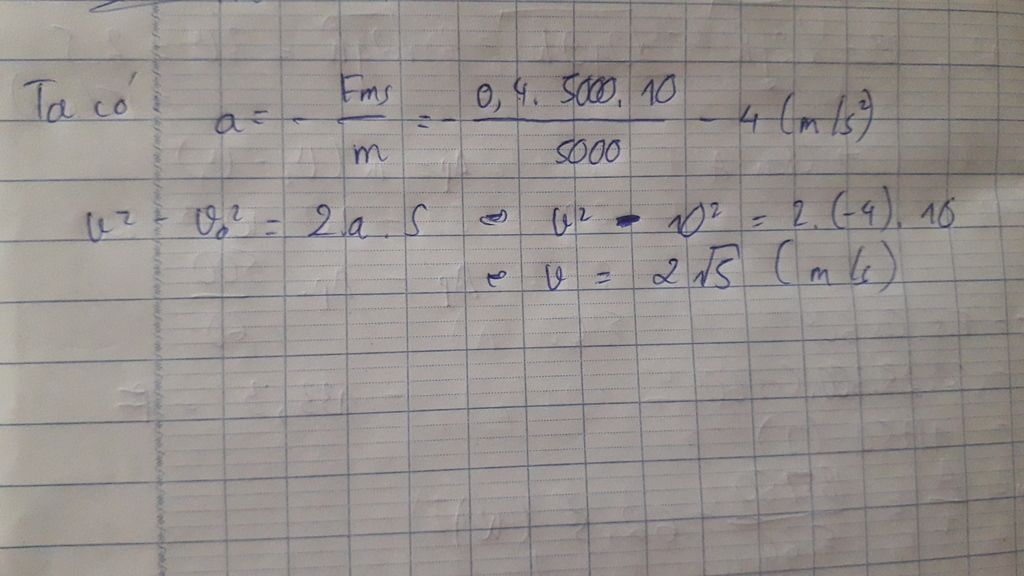 Ta có a = - Fms / m = - 0,4. 5000. 10 / 5000 - 4 (m/s²)
v² - v₀² = 2.a.S ⇔ v² - 10² = 2.(-4).10
⇔ v = 2√5 (m/s)